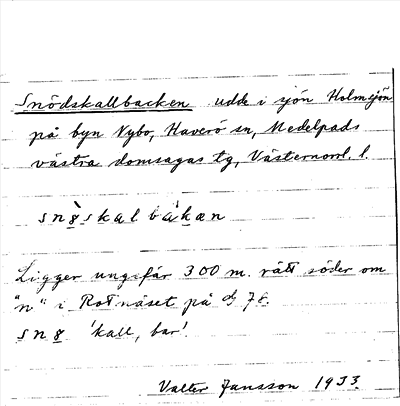 Snödskallbacken udde i sjön Holmsjön
på byn Nybo, Haverö sn, Medelpads
västra domsagas tg, Västernorrl. l.
snøskalbàkæn
Ligger ungefär 300 m. rätt söder om
"n" i Rotnäset på 78.
snø 'kall, bar'.
Valter Jansson 1933